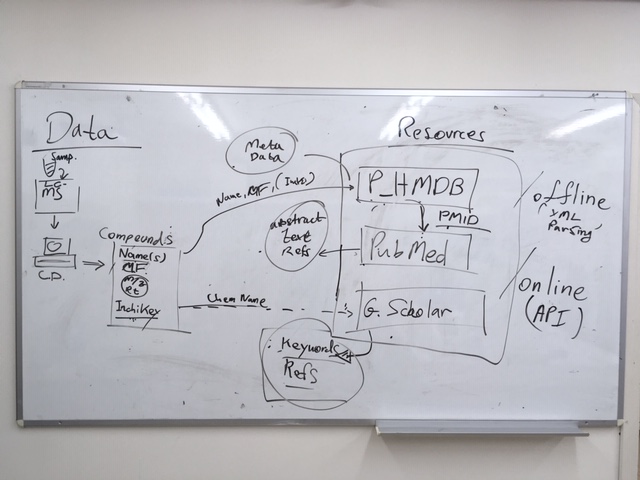 Data
Samp.
LC-
MS
C.D.
Compounds
Name(s)
MF
m/z
rt
InchiKey
Meta
Data
Name, MF, (Inki)
abstract
text
Refs
Chem Name
Keywords
Refs
Resources
P_HMDB
PMID
PubMed
G. Scholar
offline
XML
Parsing
online
(API)